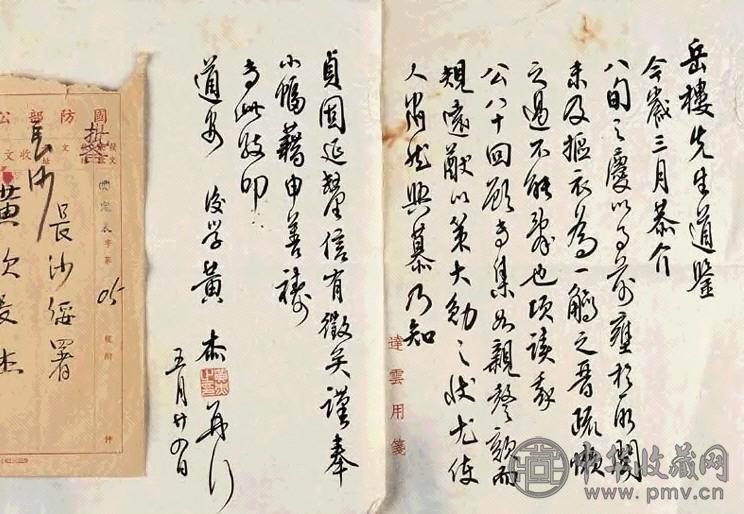 岳樓先生道鑒
今歲三月恭介
八旬之慶以局前壅於所聞
未及摳衣為一觴之晉疏懶
之過不能辭也頃讀
公八十回顧專集如親謦欬而
規遠猷以策大勳之狀尤使
人肅然興慕乃知
貞固延釐信有徵矣謹奉
小幅藉申善禱
專此敬叩
道安 後學黃杰 再行
五月廿四日
達雲用箋
國防部公
長沙
長沙綏署
黃次長杰
05
中华收藏网
www.pmv.cn